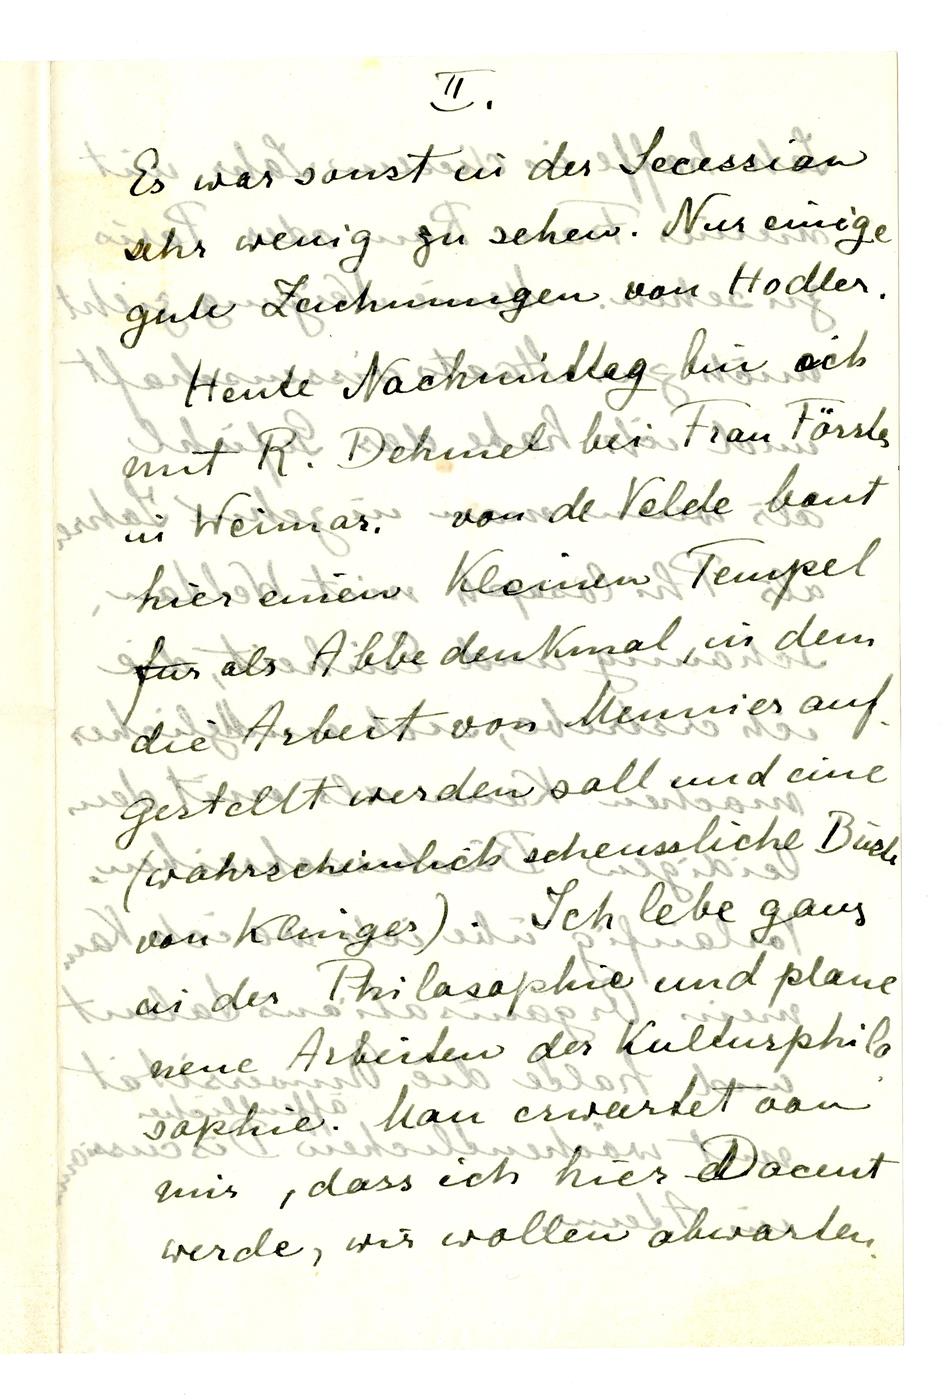 II.
Es war sonst in der Secession
sehr wenig zu sehen. Nur einige
gute Zeichnungen von Hodler.
Heute Nachmittag bin ich
mit R. Dehmel bei Frau Förster
in Weimar. van de Velde baut
hier einen Kleinen Tempel
für als Abbedenkmal, in dem
die Arbeit von Meunier auf-
gestellt werden soll und eine
(wahrscheinlich scheussliche Büste
von Klinger). Ich lebe ganz
in der Philosophie und plane
neue Arbeiten der Kulturphilo
sophie. Man erwartet von
mir, dass ich hier Docent
werde, wir wollen abwarten.